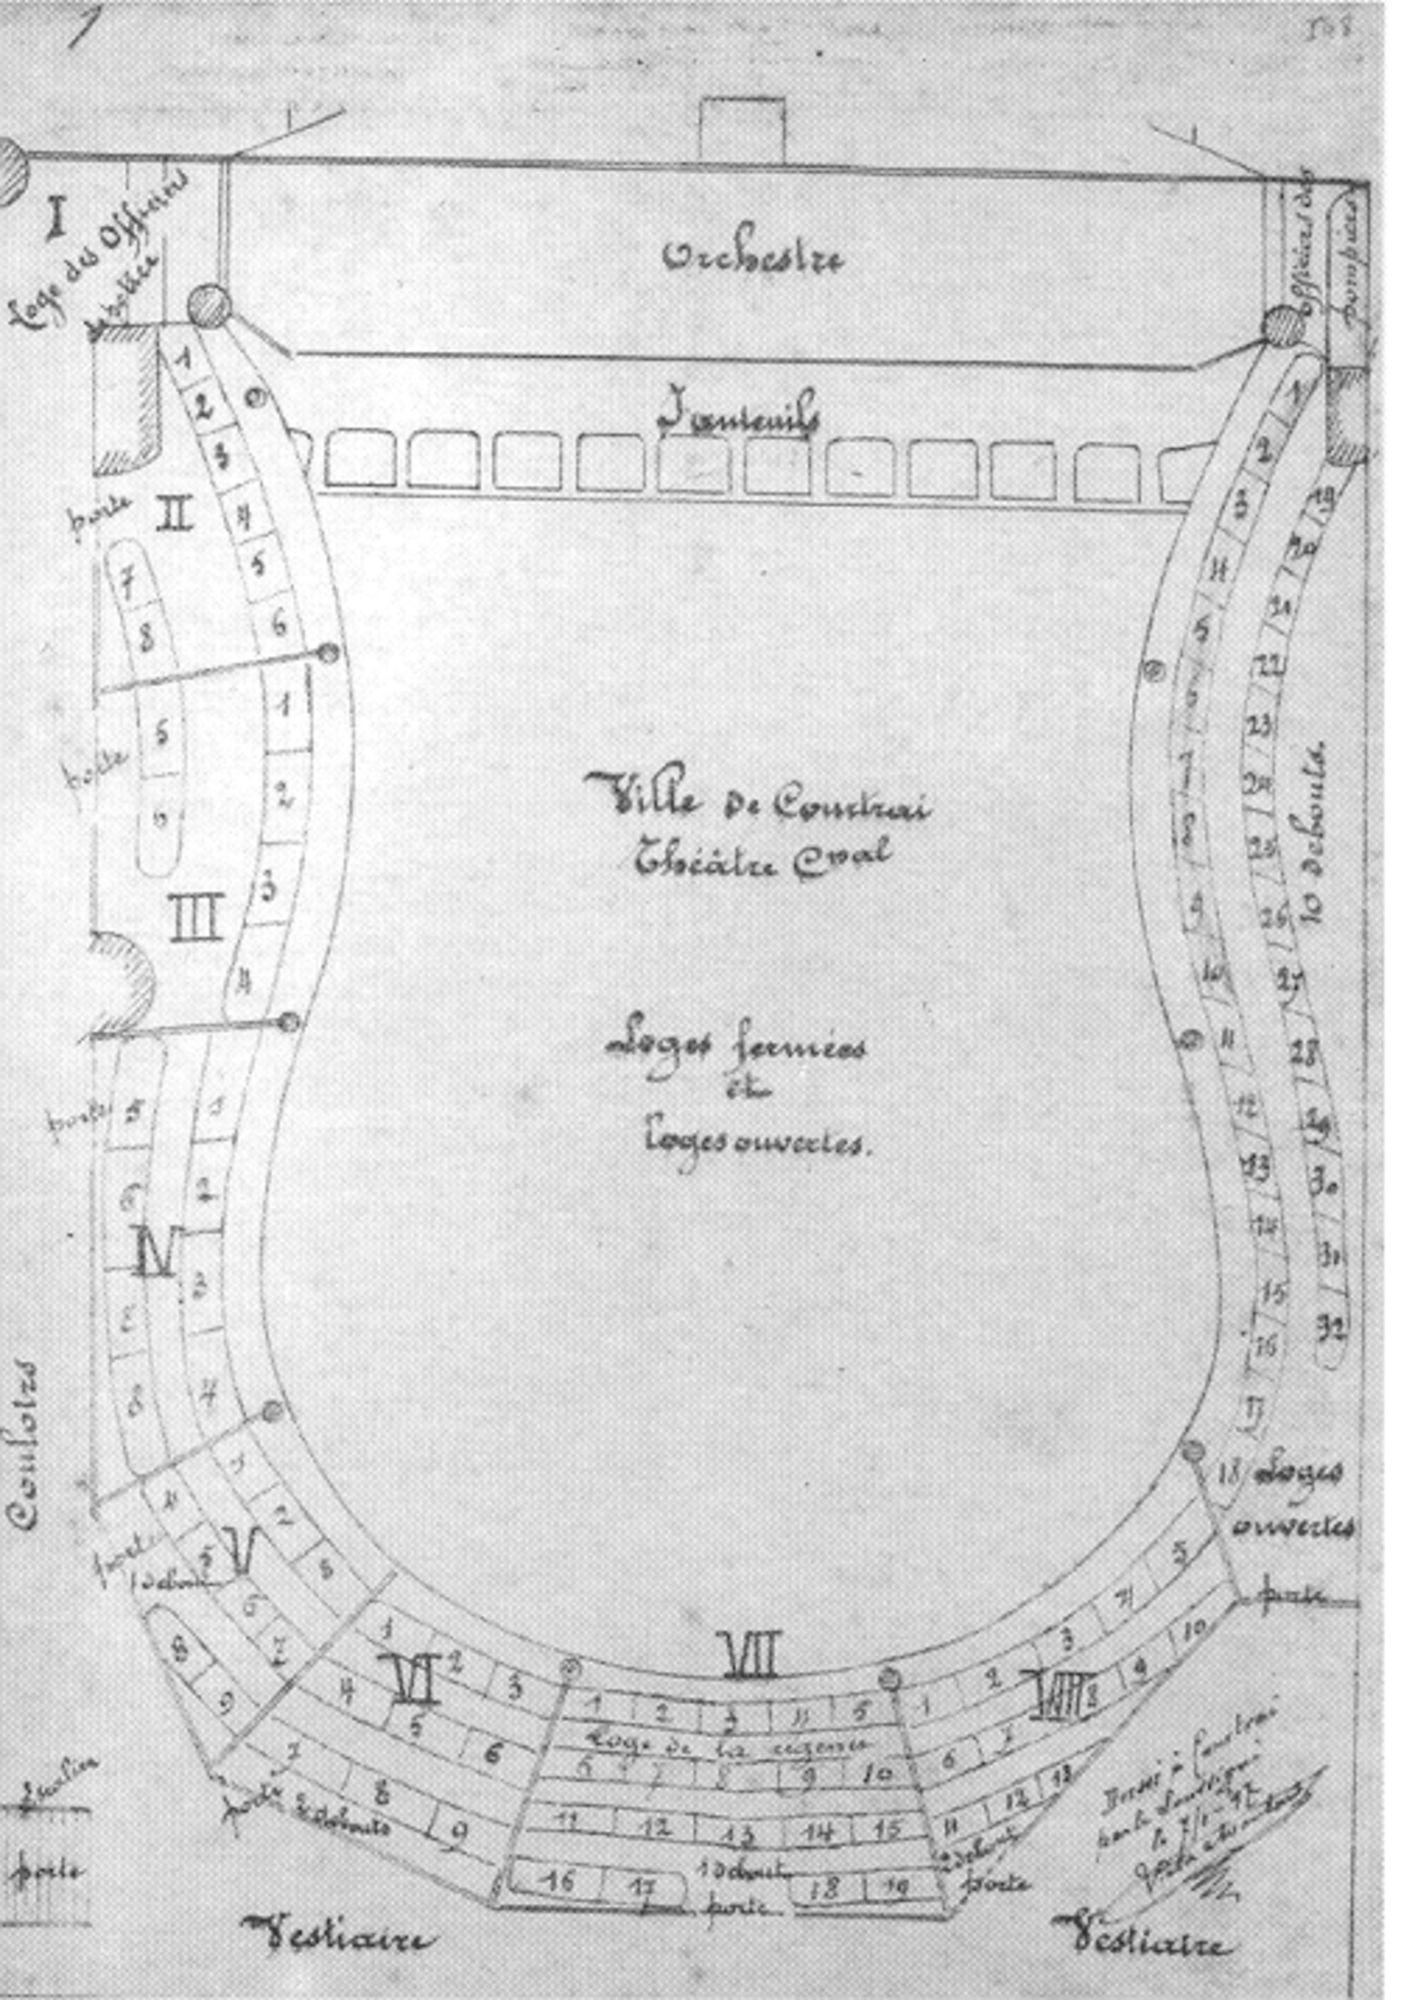 108
I
Loge des Officiers
de police
Orchestre
officiers des
pompiers
Fauteuils
1
2
3
4
5
6
porte
II
7
8
porte
1
2
3
4
III
porte
IV
Couloirs
Ville de Courtrai
Théâtre Cval
Loges fermées
et
Loges ouvertes.
1
2
3
4
5
10
11
12
13
14
15
16
17
18
Loges
ouvertes
porte
19
20
21
22
23
24
25
26
27
28
29
30
31
32
10 debouts.
porte
1 debout
V
1
2
3
4
5
6
7
8
9
VI
1
2
3
4
5
6
7
8
9
porte 2 debouts
VII
1 2 3 4 5
Loge de la régence
6 7 8 9 10
11 12 13 14 15
16 17 18 19
1 debout
porte
VIII
1 2 3 4 5
6 7 8 9 10
11 12 13
2 debout
porte
Escalier
porte
Vestiaire
Vestiaire
Dressé à Courtrai
par le Soussigné